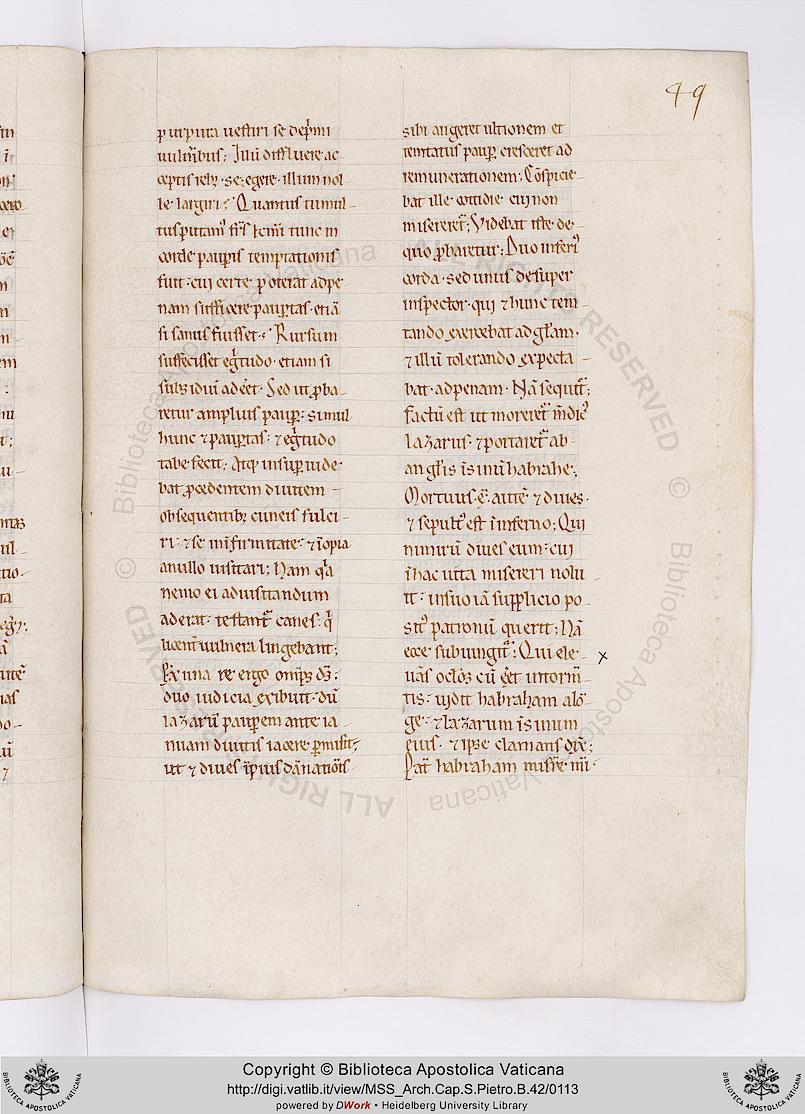 49
purpura uestiri se dep̄mi
uuln̄ibus; Illū diffluere ac
ceptis reb; se egere. illum nol
le largiri; Quantus tumul-
tus putam' fr̄s kr̄mi tunc in
corde paupis temptationis
fuit: cui certe poterat ad pe
nam sufficere paup̄tas. etiā
si sanus fuisset; Rursum
suffecisset egr̄tudo. etiam si
subsidiū adeēt. Sed ut p̄ba-
retur amplius paup̄: simul
hunc & paup̄tas: & egr̄tudo
tabefecit; Atq; insup̄ uide-
bat p̄cedentem diuitem
obsequentib; cuneis fulci-
ri: & se in infirmitate: & īopia
a nullo uisitari; Nam q̄a
nemo ei ad uisitandum
aderat: testant̄ canes: q̄
licent̄ uulnera lingebant;
Ex una re ergo om̄ps d̄s:
duo iudicia exibuit. dū
lazarū paup̄em ante ia-
nuam diuitis iacere p̄misit;
ut & diues īpius dānatiōis
sibi augeret ultionem et
temtatus paup̄ cresceret ad
remunerationem; Cōspicie-
bat ille cottidie cui non
misereret̄; Videbat iste de-
quo p̄baretur; Duo inferi'
corda. sed unus desuper
inspector. qui & hunc tem-
tando exercebat ad gl̄am.
& illū tolerando expecta-
bat. ad penam. Nā sequit̄;
Factū est ut moreret̄ m̄dic'
lazarus. & portaret̄ ab-
angl̄is ī sinū habrahe;
Mortuus ē autē & diues.
& sepult' est ī inferno; Qui
nimirū diues eum: cui
ī hac uita misereri nolu
it: in suo iā supplicio po-
sit' patronū querit; Nā
ecce subiungit̄; Qui ele-
x
uās oclōs cū eēt in torm̄-
tis: uidit habraham alō
ge: & lazarum ī sinum
eius. & ipse clamans dix̄;
Pat̄ habraham misr̄re m̄i.
Copyright © Biblioteca Apostolica Vaticana
http://digi.vatlib.it/view/MSS_Arch.Cap.S.Pietro.B.42/0113
powered by DWork • Heidelberg University Library
© Biblioteca Apostolica Vaticana ALL RIGHTS RESERVED
© Biblioteca Apostolica Vaticana ALL RIGHTS RESERVED